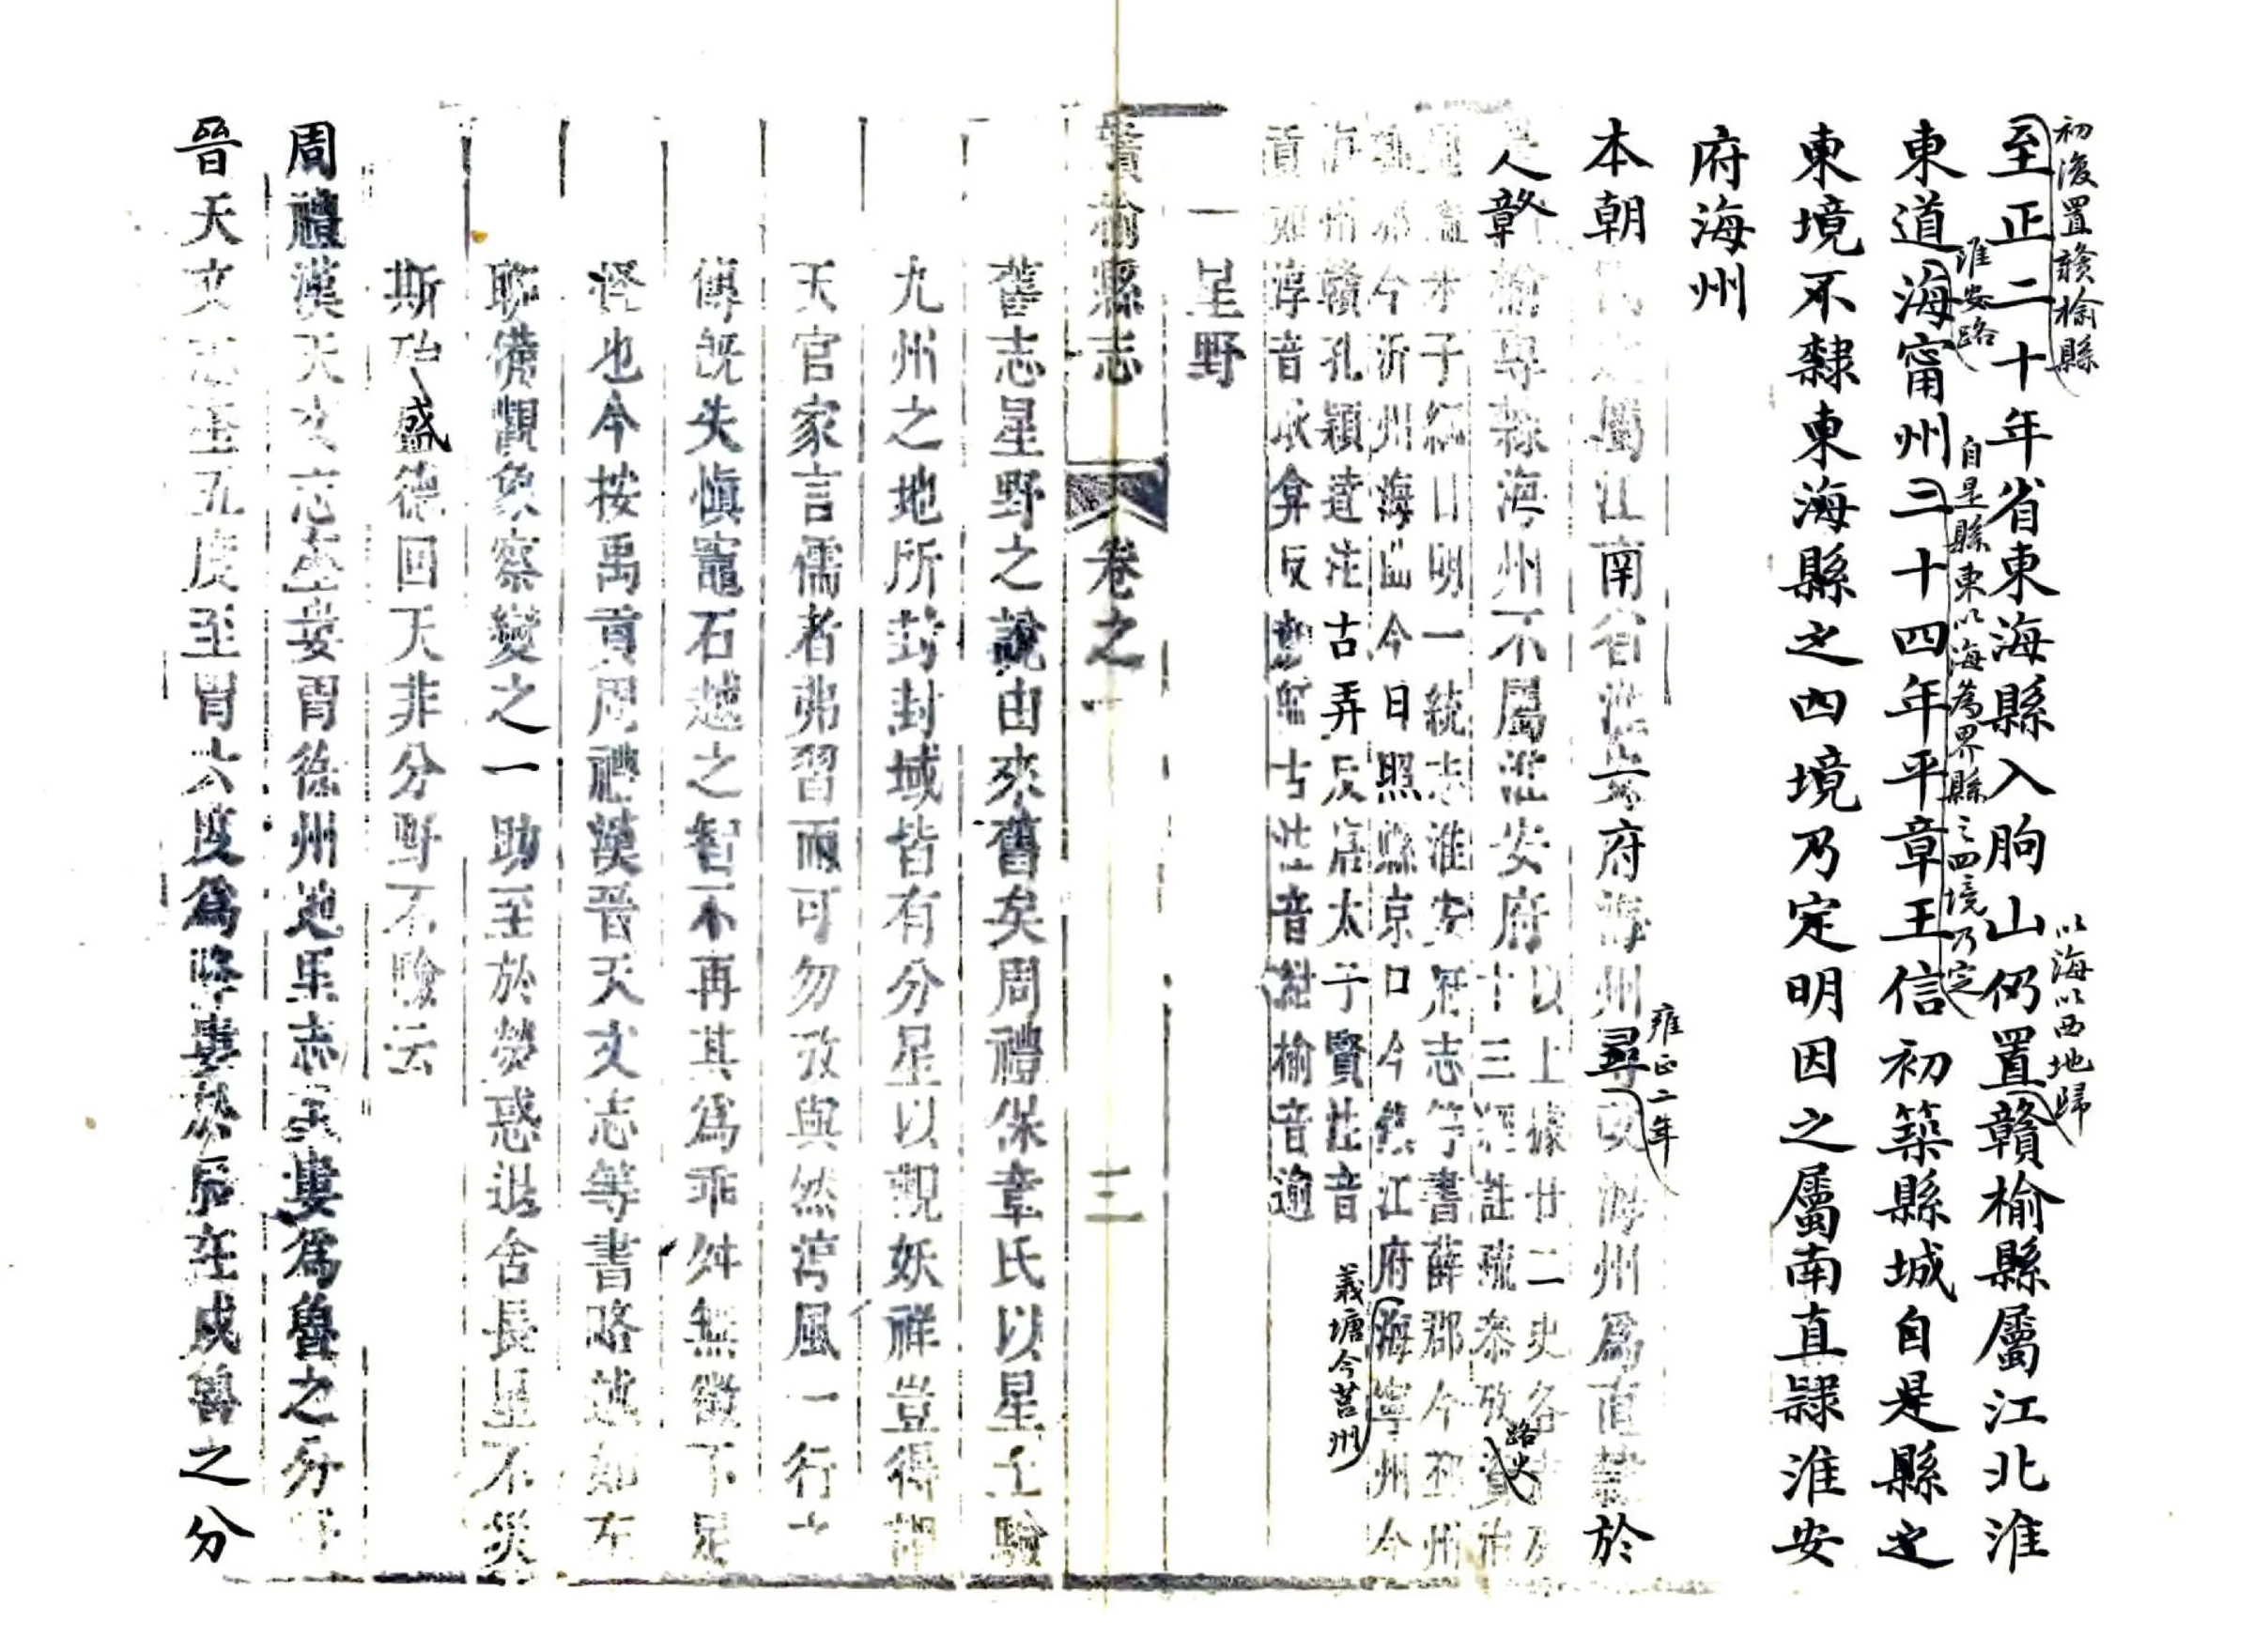 初復置贛榆縣
以海以西地歸
至正二十年省東海縣入朐山仍置贛榆縣屬江北淮
淮安路
自是縣東以海為界縣之四境乃定
東道海甯州二十四年平章王信初築縣城自是縣之
東境不隸東海縣之四境乃定明因之屬南直隸淮安
府海州
雍正二年
本朝屬江南省淮安府海州尋改海州爲直隸於
是贛榆專隸海州不屬淮安府
以上據廿二史各
十三經註疏泰攷
路史
才子綱目明一統志淮安府志等書薛郡今邳州
今沂州海曲今日照縣京口今鎮江府海寧州今
義塘今莒州
海州贛孔穎達注古弄反唐太子賢註音
貢如淳音耿弇反古註音紺榆音逾
一星野
贛榆縣志
卷之一
三
舊志星野之說由來舊矣周禮保章氏以星土驗
九州之地所封封域皆有分星以觀妖祥豈得謂
天官家言儒者弗習而可勿攷與然淳風一行之
傳既失愼竈石越之智不再其爲乖舛無徵不足
怪也今按禹貢周禮漢晉天文志等書略述如左
聊備觀象察變之一助至於熒惑退舍長星不災
斯殆盛德回天非分野不驗云
周禮漢天文志奎婁胃徐州地里志奎婁爲魯之分野
晉天文志奎五度至胃六度爲降婁於辰在戌魯之分